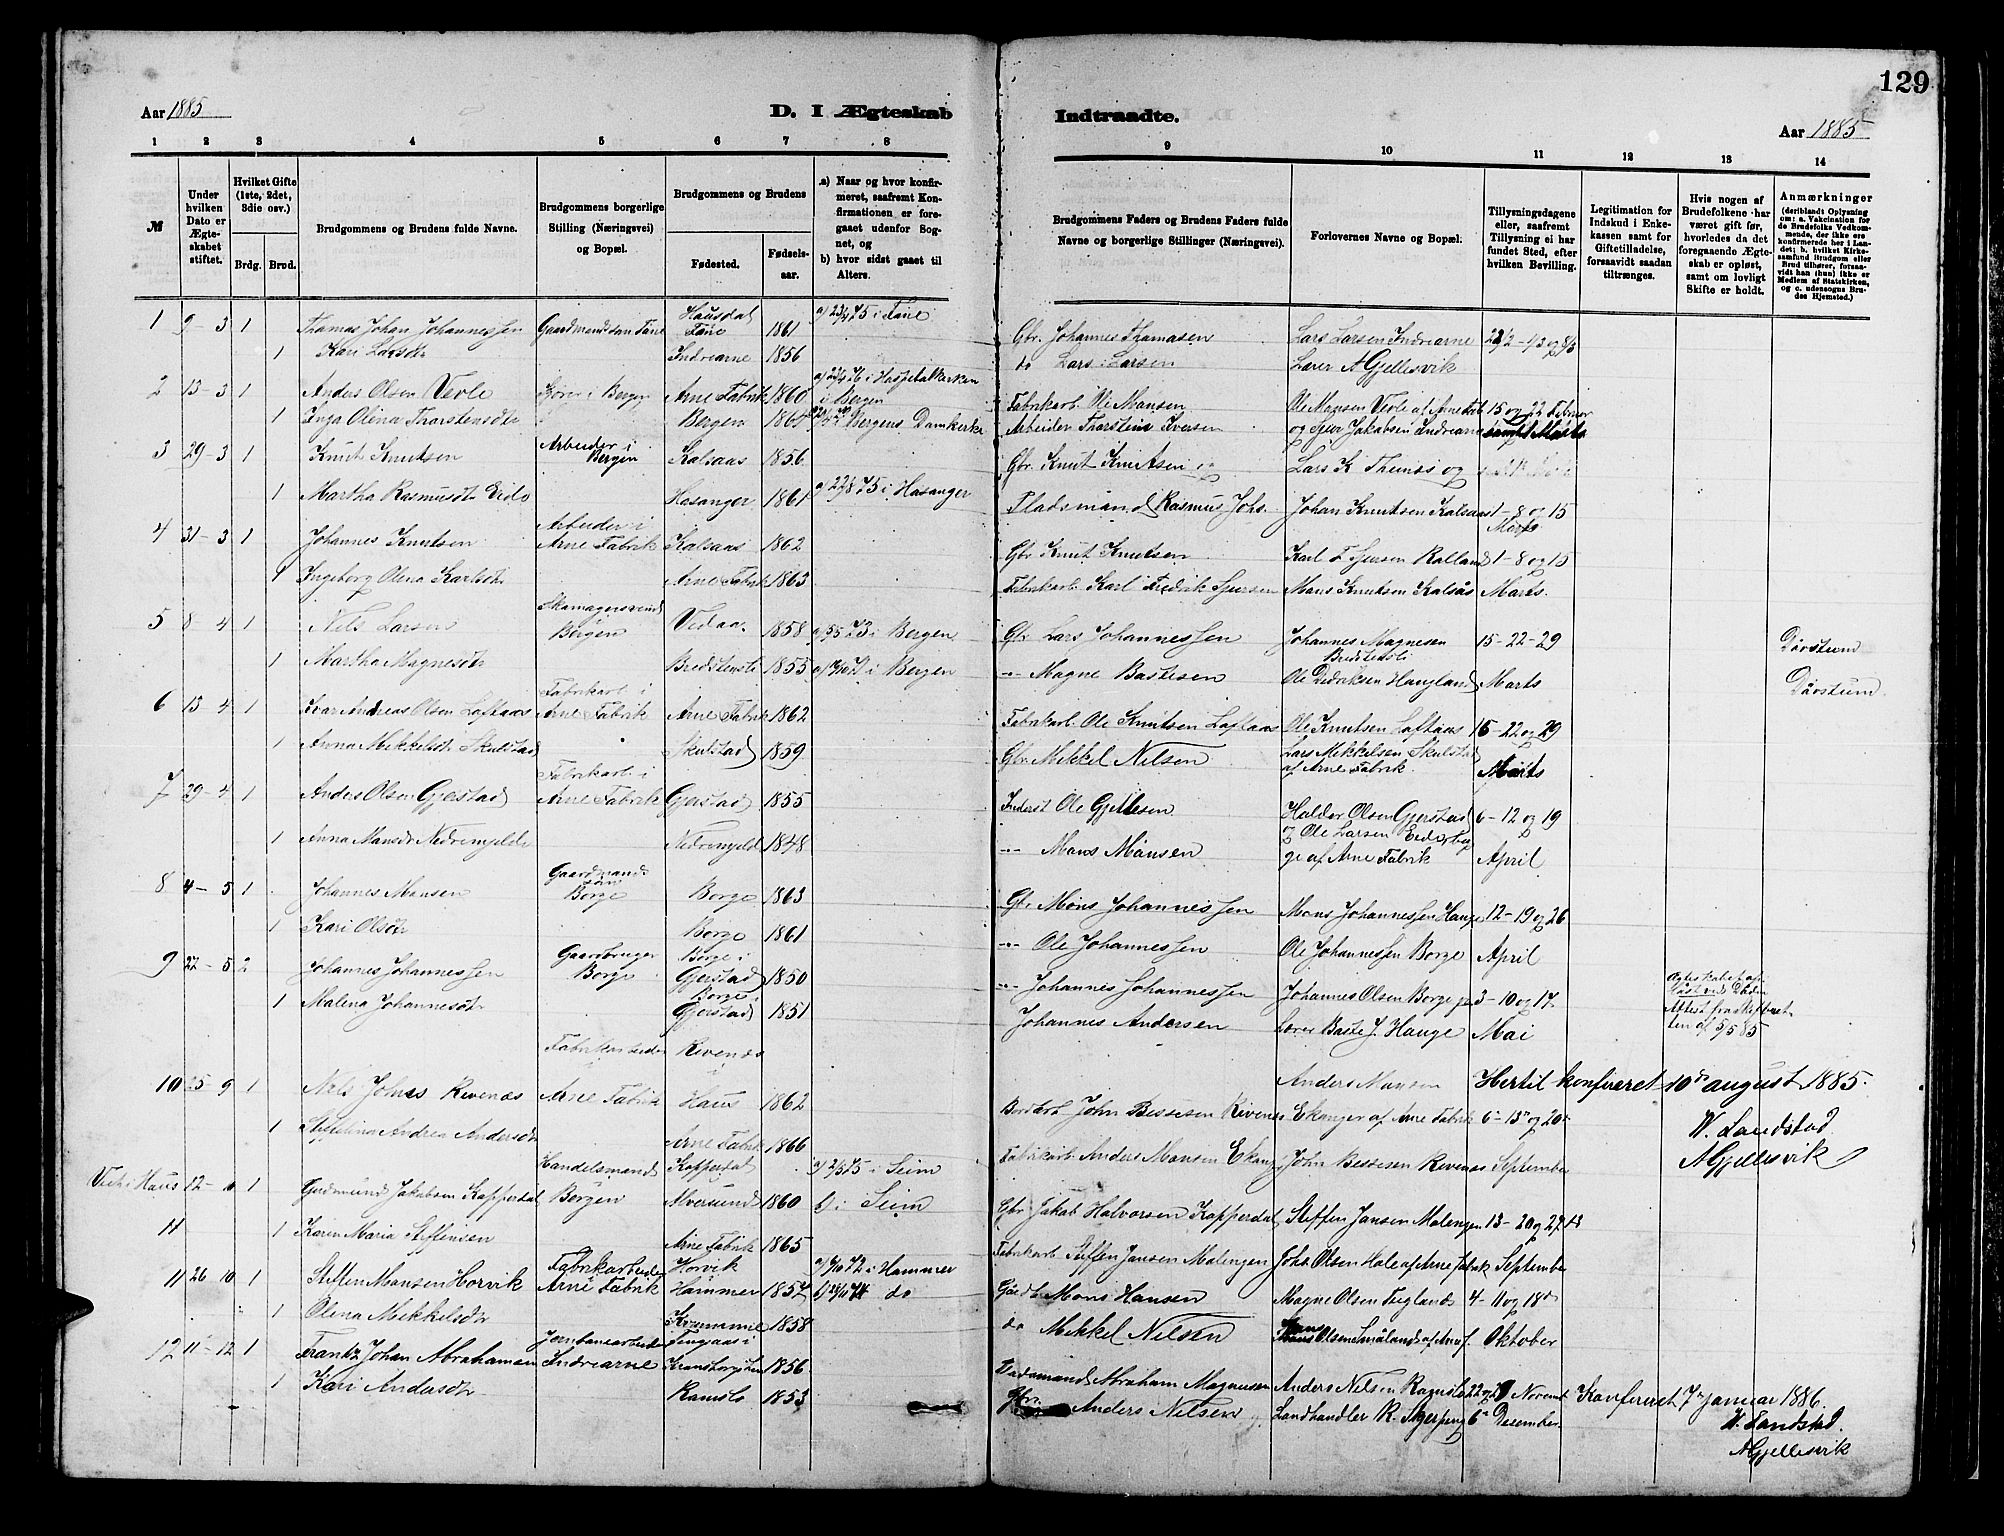 129
Aar 1885
D. I Ægteskab
Indtraadte.
Aar 1885
1 2 3 4 5 6 7 8
9 10 11 12 13 14
№
Under hvilken Dato er Ægteskabet stiftet.
Hvilket Gifte (1ste, 2det, 3die osv.)
Brdg. Brud.
Brudgommens og Brudens fulde Navne.
Brudgommens borgerlige Stilling (Næringsvei) og Bopæl.
Brudgommens og Brudens
Fødested.
Fødselsaar.
a.) Naar og hvor konfirmeret, saafremt Konfirmationen er foregaaet udenfor Sognet, og
b) hvor sidst gaaet til Alters.
Brudgommens Faders og Brudens Faders fulde Navne og borgerlige Stillinger (Næringsvei).
Forlovernes Navne og Bopæl.
Tillysningsdagene eller, saafremt Tillysning ei har fundet Sted, efter hvilken Bevilling.
Legitimation for Indskud i Enkekassen samt for Giftetilladelse, forsaavidt saadan tiltrænges.
Hvis nogen af Brudefolkene har været gift før, hvorledes da det foregaaende Ægteskab er opløst, samt om lovligt Skifte er holdt.
Anmærkninger
(deriblandt Oplysning om: a. Vakcination for de Brudefolks Vedkommende, der ikke ere konfirmerede her i Landet; b. hvilket Kirkesamfund Brudgom eller Brud tilhører, forsaavidt han (hun) ikke er Medlem af Statskirken, og c. udensogns Brudes Hjemsted.)
1 9-3 1 Thomas Johan Johannessen Gaardmandssøn Tane Hausdal Tane 1861 i Tane Gbr. Johannes Thomasen Lars Larsen Indrearne
1 Kari Larsdtr Indrearne 1856 do Lars Larsen Lærer A Gjellesvik
2 13-3 1 Anders Olsen Vevle i Bergen Arne Fabrik 1860 i Hospitalkirken i Bergen Fabrikarb. Ole Monsen Ole Monsen Vevle af Arne Fab 15 og 22 Februar
1 Inga Olina Thorstensdtr Bergen 1864 Bergens Domkirke Arbeider Thorstein Iversen og Jakobsen Indrearne samt Marts
3 29-3 1 Knut Knutsen Arbeider i Bergen Kalsaas 1856 Gbr Knut Knutsen og Lars K og
1 Martha Rasmusdtr Eide Hosanger 1861 a) 22/8 75 i Hosanger Pladsmand Rasmus Johs. Johan Knutsen Kalsaas 1-8 og 15 Marts
4 31-3 1 Johannes Knutsen Arbeider i Arne Fabrik Kalsaas 1862 Gbr Knut Knutsen Karl F Sjursen Kalland 1-8 og 15
1 Ingeborg Olena Karlsdtr Arne Fabrik 1863 Fabrikarb. Karl Fredrik Sjursen Mons Knutsen Kalsås Marts.
5 8-4 1 Nils Larsen Skomagersvend Bergen Vedaa 1858 i Bergen Gbr Lars Johannessen Johannes Magnesen Bredstensli 15-22-29 Døvstum
1 Martha Magnesdtr Bredstensli 1855 i Bergen Magne Bastesen Ole Didriksen Haugland Marts Døvstum
6 13 4 1 Ivar Andreas Olsen Loftaas Fabrikarb i Arne Fabrik Arne Fabrik 1862 Fabrikarb Ole Knutsen Loftaas Ole Knutsen Loftaas 15-22 og 29
1 Anna Mikkelsdtr Skulstad Skulstad 1859 Gbr Mikkel Nilsen Lars Mikkelsen Skulstad af Arne Fabrik. Marts
7 29-4 1 Anders Olsen Gjerstad Fabrikarb i Arne Fabrik Gjerstad 1855 Inderst Ole Gjellesen Haldor Olsen Gjerstad 6-12 og 19
1 Anna Monsdtr 1848 Mons Monsen og Ole Larsen af Arne Fabrik April
8 4-5 1 Johannes Monsen Gaardmandssøn Borge Borge 1863 Gbr Mons Johannessen Mons Johannessen Hauge 12-19 og 26
1 Kari Olsdtr Borge 1861 Ole Johannessen Ole Johannessen Borge April
9 22-5 2 Johannes Johannessen Gaardbruger Borge Borge i Gjerstad 1850 Johannes Johannessen Johannes Olsen Borge 3-10 og 17 Ægteskabet af- løst ved Døden Attest fra skifteret- ten af 5/5 85
1 Malena Johannesdtr Borge i Gjerstad 1851 Johannes Andersen Lærer Baste J. Hauge Mai
10 25 9 1 Nils Johns Revenæs Fabrikarbeider i Arne Fabrik Revenæs i Haus 1862 Anders Monsen Hertil konfireret 10de august 1885.
Bordarb John Bessesen Rivenæs Ekanger af Arne Fabrik 6-13 og 20de W. Landstad.
1 Andrea Andersdtr Arne Fabrik 1866 Fabrikarb. Anders Monsen Ekang John Bessesen Revenæs September A Gjellesvik
Viet i Haus 12-10 1 Gudmund Jakobsen Kopperdal Handelsmand Bergen Kopperdal Alversund 1860 i Seim b) i Seim Gbr. Jakob Halvorsen Kopperdal Steffen Jansen Molengen 13-20 og 27de
11 1 Karen Maria Steffensen Arne Fabrik 1865 Fabrikarb Steffen Jansen Molengen Johs Olsen Hole af Arne Fabrik September
11 26 10 1 Steffen Monsen Horvik Fabrikarbeider Arne Fabrik Horvik Hammer 1857 i Hammer do Mons Hansen Magne Olsen 4-11 og 18de
1 Olena Mikkelsdtr 1858 do Mikkel Nilsen Olsen Småland af Oktober
12 11-12 1 Frantz Johan Abrahamsen Jernbanearbeider Indrearne 1856 Abraham Magnusen Anders Nilsen Ramslo Novemb Konfereret 7de januar 1886.
1 Kari Andersdtr Ramslo 1853 Gbr. Anders Nilsen Landhandler R. 6te December. W. Landstad.
A Gjellesvik